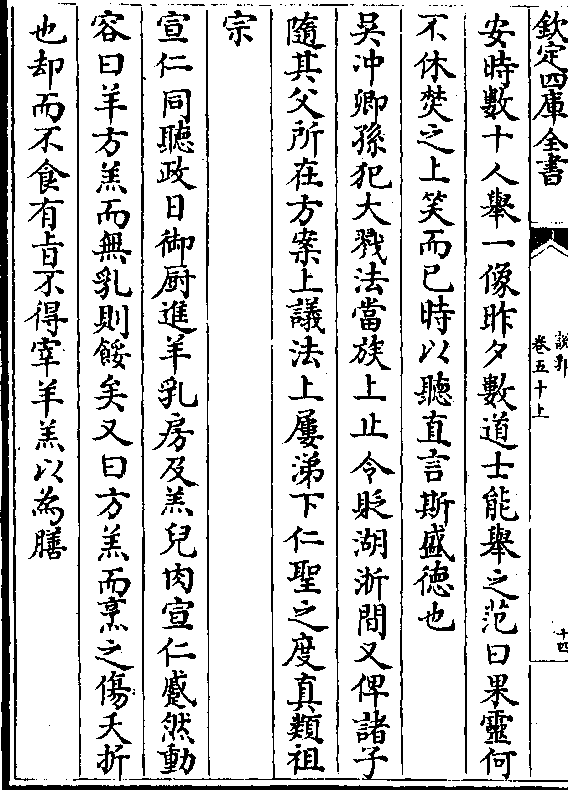 欽定四庫全書
說郛
卷五十上
十四
安時數十人舉一像昨夕數道士能舉之范曰果靈何
不休焚之上笑而已時以聽直言斯盛德也
吳冲卿孫犯大戮法當族上止令貶湖浙間又俾諸子
隨其父所在方案上議法上屢涕下仁聖之度真類祖
宗
宣仁同聽政日御厨進羊乳房及羔兒肉宣仁蹙然動
容曰羊方羔而無乳則餒矣又曰方羔而烹之傷夭折
也却而不食有旨不得宰羊羔以為膳